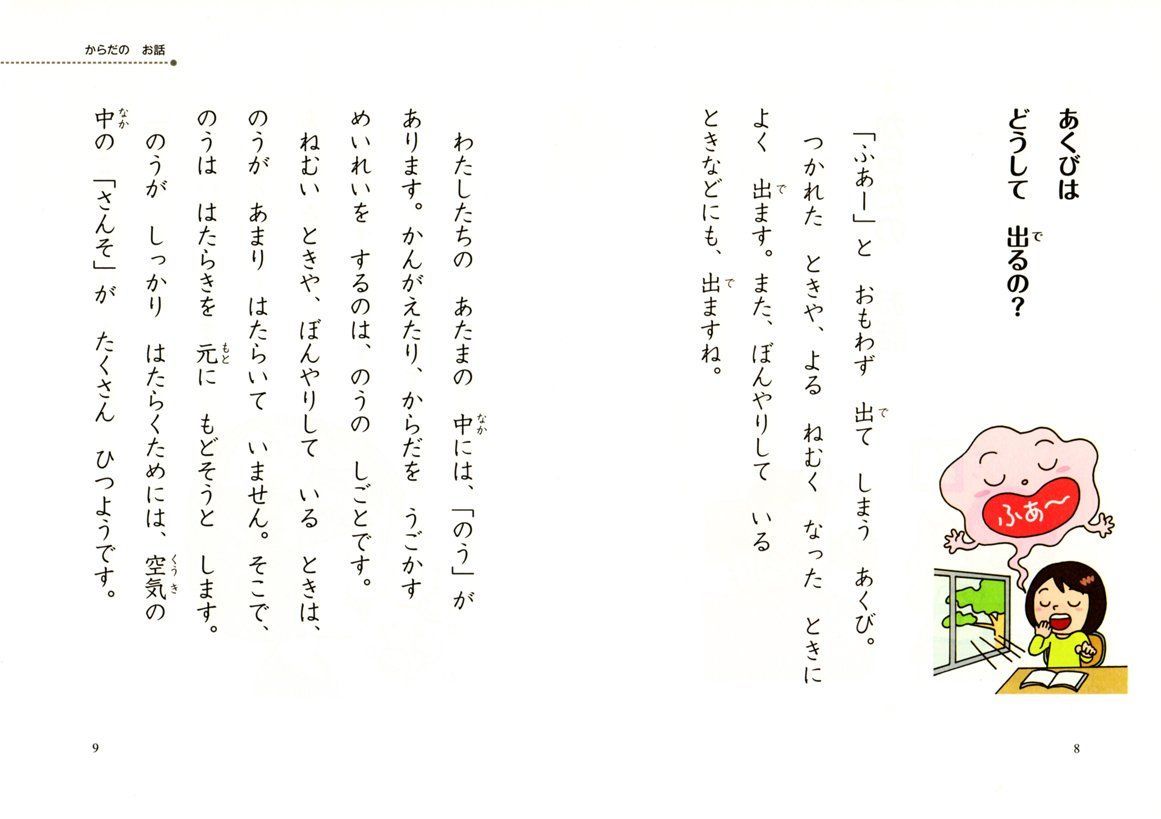 あくびは
どうして 出るの？
「ふあー」と おもわず 出て しまう あくび。
つかれた ときや、よる ねむく なった ときに
よく 出ます。また、ぼんやりして いる
ときなどにも、出ますね。
ふあ〜
8
からだの お話
わたしたちの あたまの 中には、「のう」が
あります。かんがえたり、からだを うごかす
めいれいを するのは、のうの しごとです。
ねむい ときや、ぼんやりして いる ときは、
のうが あまり はたらいて いません。そこで、
のうは はたらきを 元に もどそうと します。
のうが しっかり はたらくためには、空気の
中の 「さんそ」が たくさん ひつようです。
9